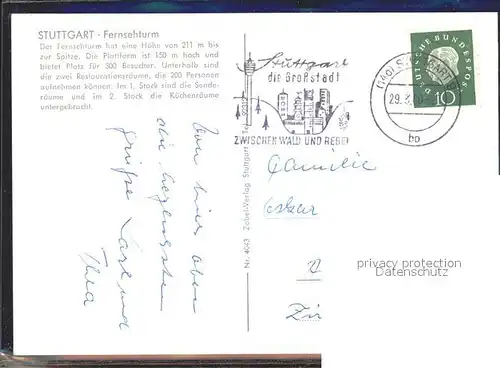 STUTTGART - Fernsehturm
Der Fernsehturm hat eine Höhe von 211 m bis
zur Spitze. Die Plattform ist 150 m hoch und
bietet Platz für 300 Besucher. Unterhalb sind
die zwei Restaurationsräume, die 200 Personen
aufnehmen können. Im 1. Stock sind die Sende-
räume und im 2. Stock die Küchenräume
untergebracht.
Stuttgart
die Großstadt
ZWISCHEN WALD UND REBEN
DEUTSCHE BUNDESPOST
10
29.
bo
Von hier oben
die herzlichsten
Grüße
und
Thea
Nr. 4043 Zobel-Verlag Stuttgart Tel.
Familie
Oskar
privacy protection
Datenschutz